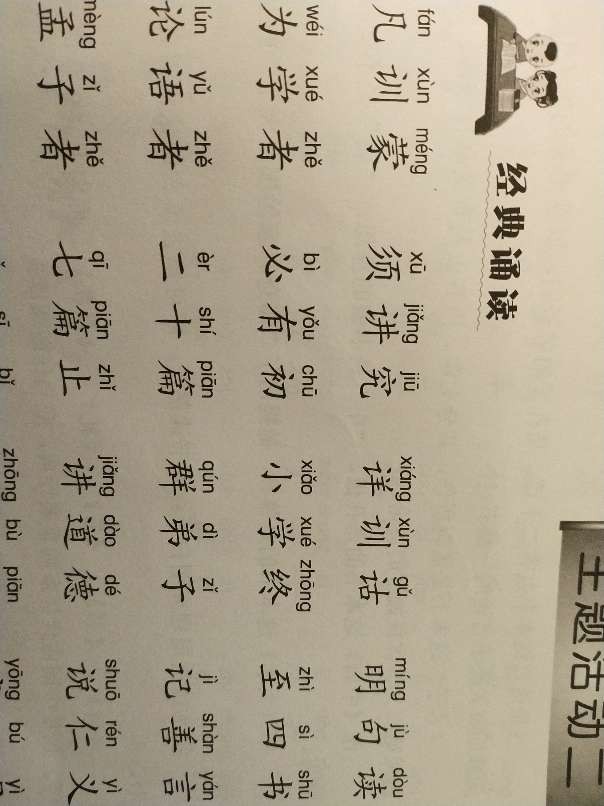 主题活动二
经典诵读
fán xùn méng xū jiǎng jiū xiáng xùn gǔ míng jù dòu
凡训蒙 须讲究 详训诂 明句读
wéi xué zhě bì yǒu chū xiǎo xué zhōng zhì sì shū
为学者 必有初 小学终 至四书
lún yǔ zhě èr shí piān qún dì zǐ jì shàn yán
论语者 二十篇 群弟子 记善言
mèng zǐ zhě qī piān zhǐ jiǎng dào dé shuō rén yì
孟子者 七篇止 讲道德 说仁义
sī bǐ zhōng bù piān yōng bú yì